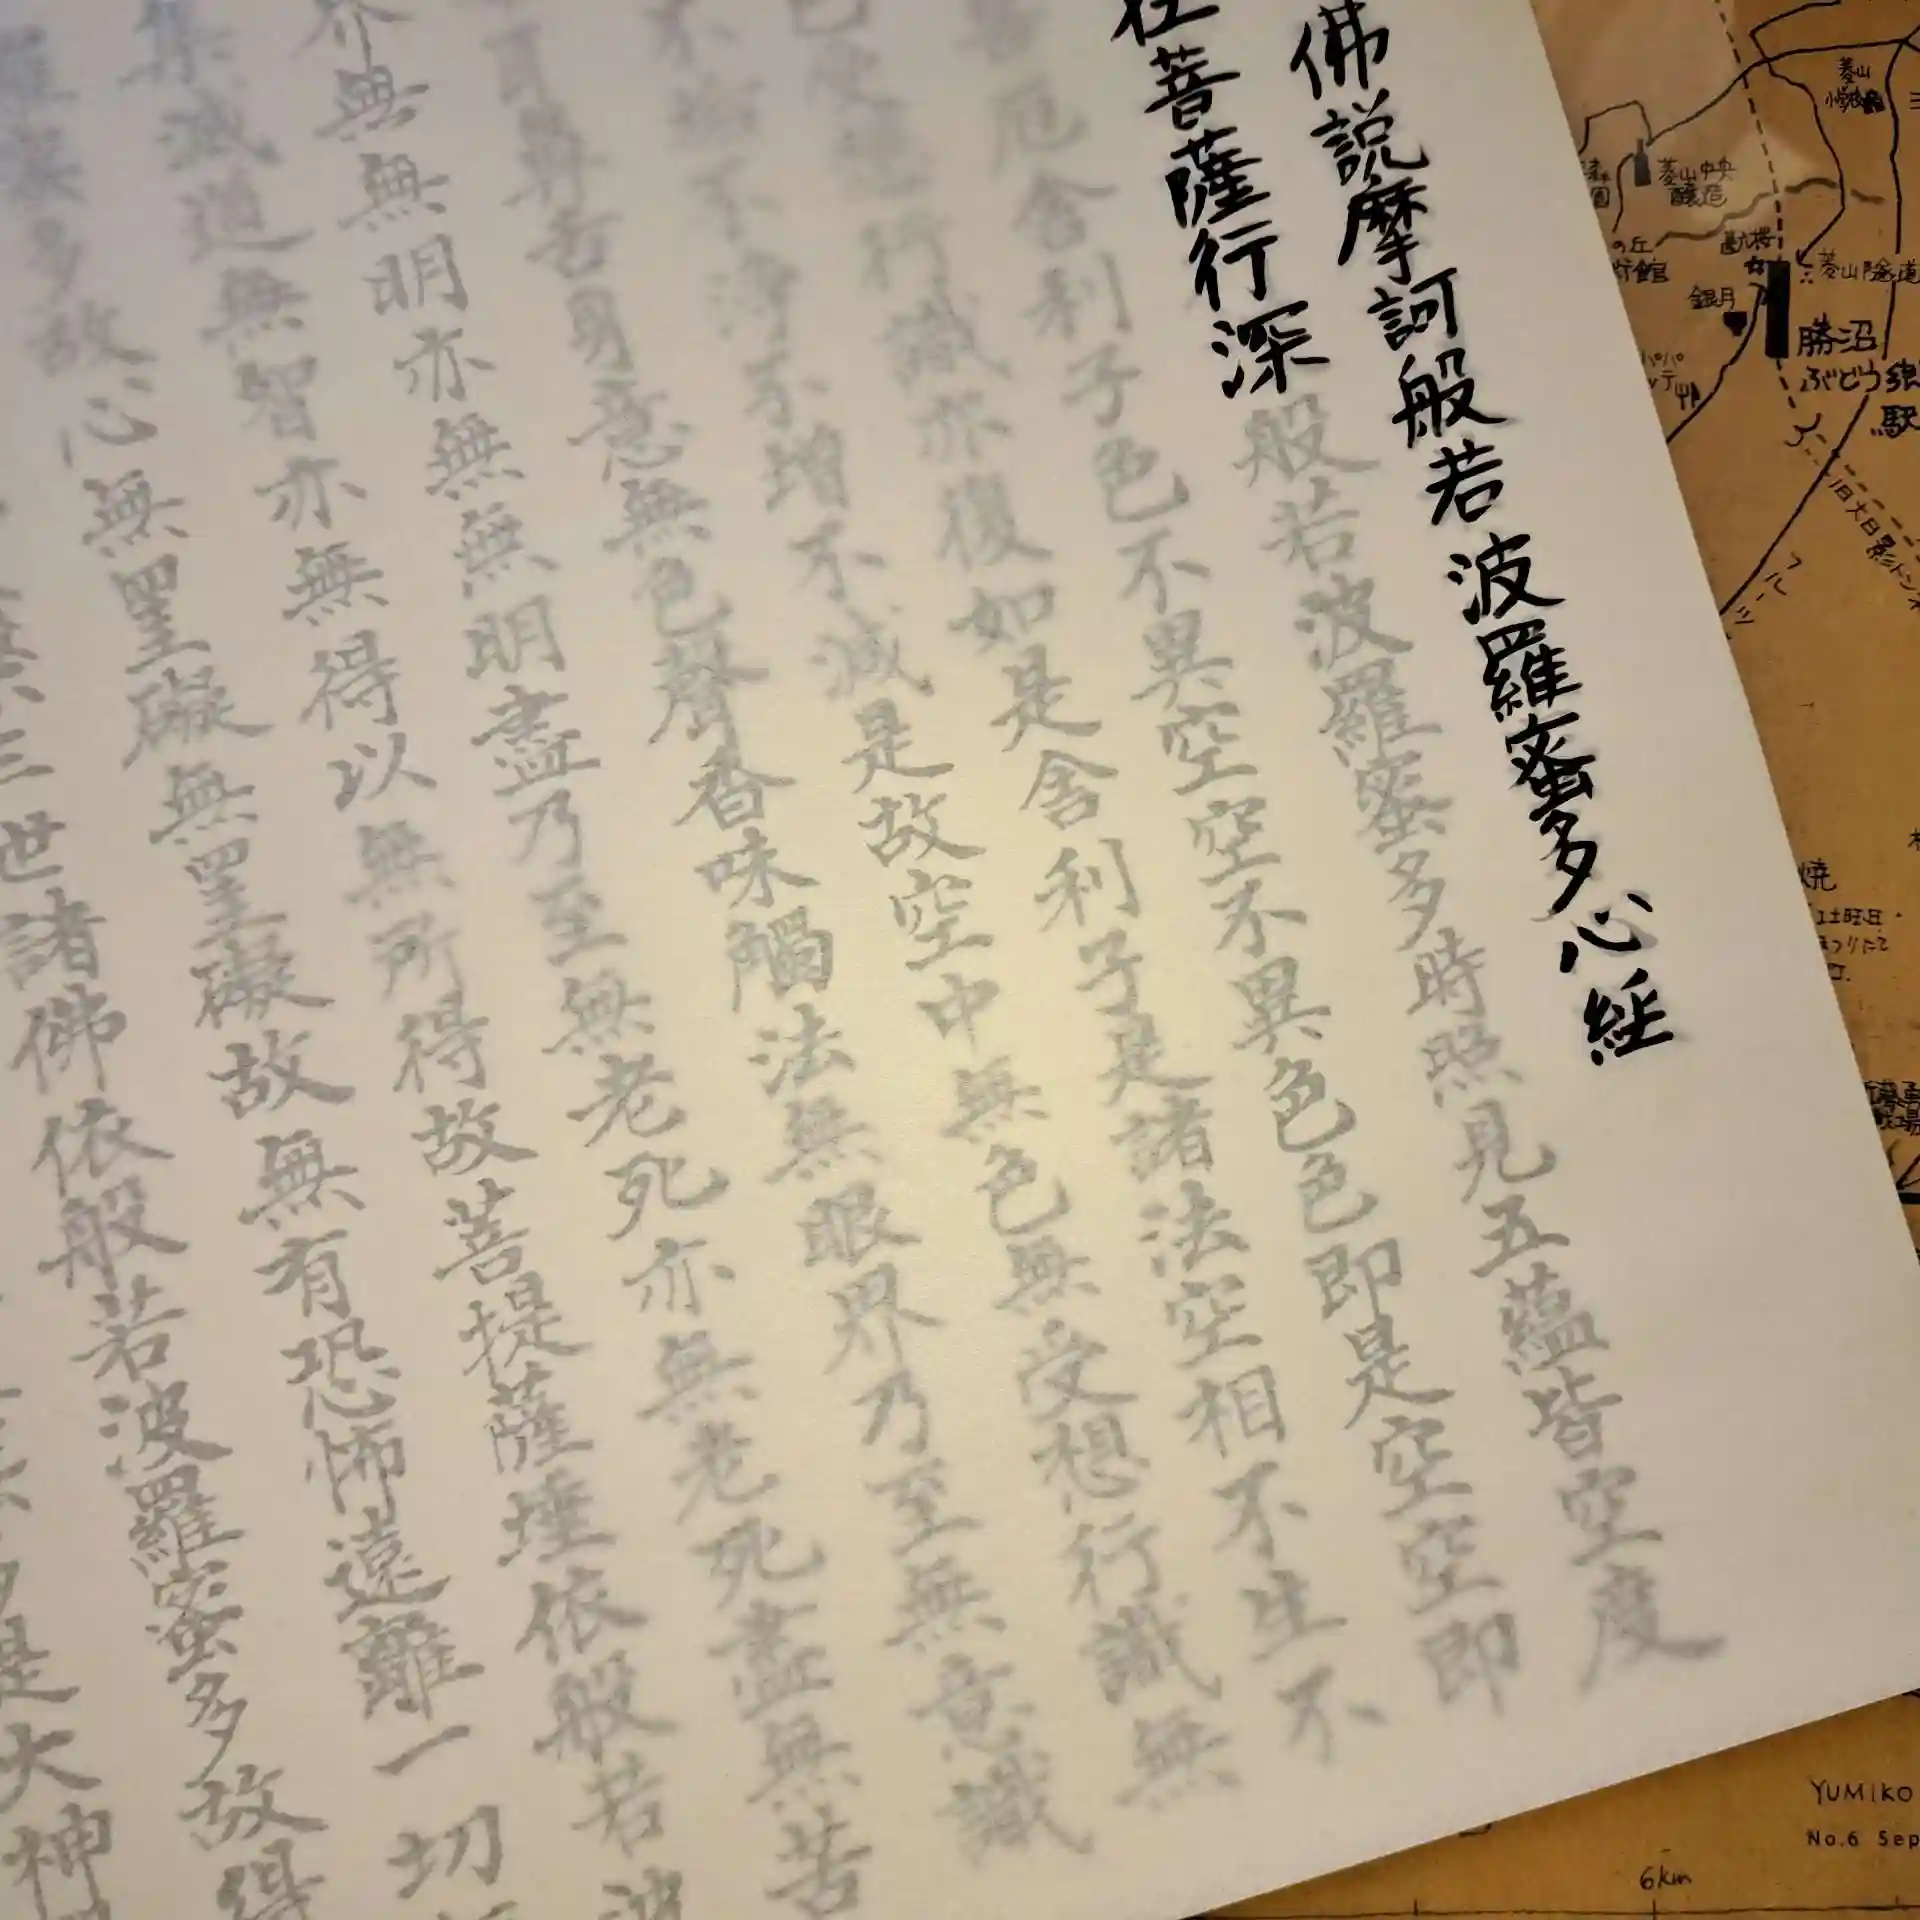 佛説摩訶般若波羅蜜多心経
在菩薩行深般若波羅蜜多時照見五蘊皆空度
厄舍利子色不異空空不異色色即是空空即
行識亦復如是舍利子是諸法空相不生不
不淨不增不減是故空中無色無受想行識無
耳鼻舌身意無色聲香味觸法無眼界乃至無意識
界無無明亦無無明盡乃至無老死亦無老死盡無苦
集滅道無智亦無得以無所得故菩提薩埵依般若波
羅蜜多故心無罣礙無罣礙故無有恐怖遠離一切
三世諸佛依般若波羅蜜多故得
多是大神
菱山
小学校
菱山中央
醸造
の丘
術館
銀月
菱山隧道
勝沼
ぶどう郷
駅
旧大日影トンネル
焼
YUMIKO
No.6 Sep
6km